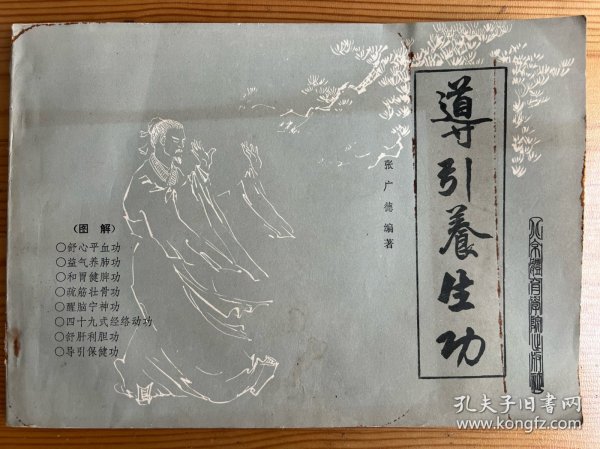 導引養生功
张广德编著
北京體育學院出版社
（图 解）
○舒心平血功
○益气养肺功
○和胃健脾功
○疏筋壮骨功
○醒脑宁神功
○四十九式经络动功
○舒肝利胆功
○导引保健功
孔夫子旧书网
www.kongfz.com